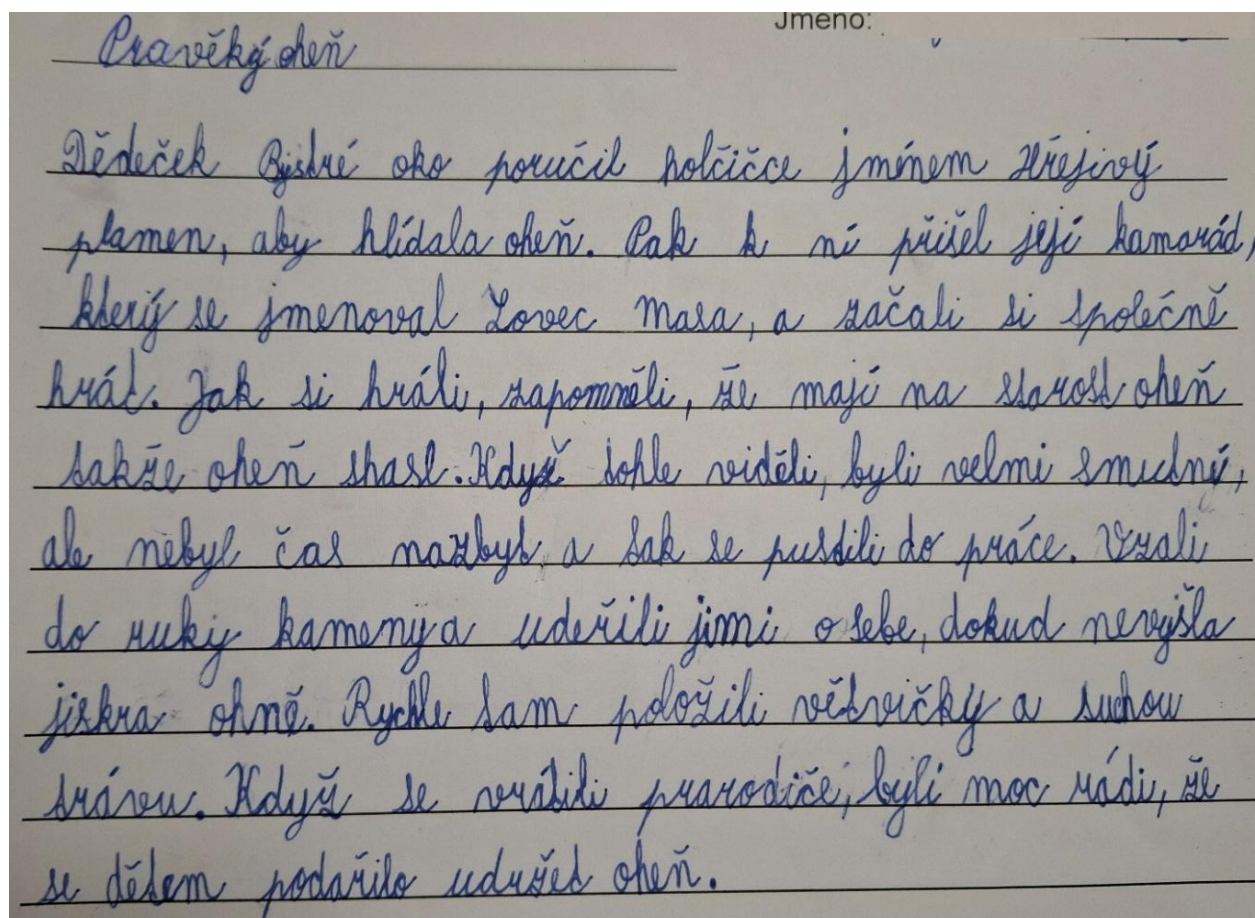 Jméno:
Pravěký oheň
Dědeček Bystré oko poručil holčičce jménem Hřejivý
plamen, aby hlídala oheň. Pak k ní přišel její kamarád,
který se jmenoval Lovec masa, a začali si společně
hrát. Jak si hráli, zapomněli, že mají na starost oheň
takže oheň shasl. Když tohle viděli, byli velmi smutný,
ale nebyl čas nazbyt, a tak se pustili do práce. Vzali
do ruky kameny a udeřili jimi o sebe, dokud nevyšla
jiskra ohně. Rychle tam položili větvičky a suchou
trávu. Když se vrátili prarodiče, byli moc rádi, že
se dětem podařilo udržet oheň.